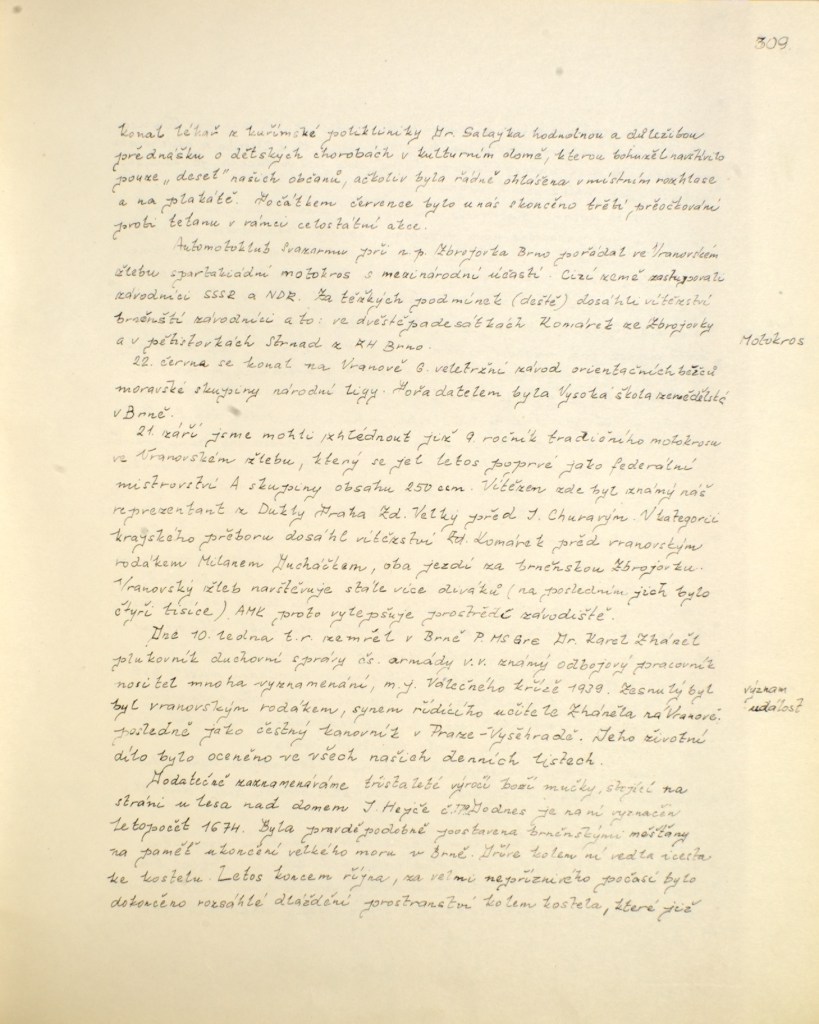 309.
konal lékař z kuřimské polikliniky Dr. Salajka hodnotnou a důležitou
přednášku o dětských chorobách v kulturním domě, kterou bohužel navštívilo
pouze „deset" našich občanů, ačkoliv byla řádně ohlášena v místním rozhlase
a na plakátě. Počátkem července bylo u nás skončeno třetí přeočkování
proti tetanu v rámci celostátní akce.
Automotoklub Svazarmu při n.p. Zbrojovka Brno pořádal ve Vranovském
žlebu spartakiádní motokros s mezinárodní účastí. Cizí země zastupovali
závodníci SSSR a NDR. Za těžkých podmínek (deště) dosáhli vítězství
brněnští závodníci a to: ve dvěstěpadesátkách Komárek ze Zbrojovky
a v pětistovkách Strnad z RH Brno.
Motokros
22. června se konal na Vranově 6. veletržní závod orientačních běžců
moravské skupiny národní ligy. Pořadatelem byla Vysoká škola zemědělská
v Brně.
21. září jsme mohli zhlédnout již 9. ročník tradičního motokrosu
ve Vranovském žlebu, který se jel letos poprvé jako federální
mistrovství A skupiny obsahu 250 ccm. Vítězem zde byl známý náš
reprezentant z Dukly Praha Zd. Velký před J. Churavým. V kategorii
krajského přeboru dosáhl vítězství Zd. Komárek před vranovským
rodákem Milanem Ducháčkem, oba jezdí za brněnskou Zbrojovku.
Vranovský žleb navštěvuje stále více diváků (na posledním jich bylo
čtyři tisíce). AMK proto vylepšuje prostředí závodiště.
Dne 10. ledna t.r. zemřel v Brně P. MSGre Dr. Karel Zháněl
plukovník duchovní správy čs. armády v.v. známý odbojový pracovník
nositel mnoha vyznamenání, m.j. Válečného kříže 1939. Zesnulý byl
význam
byl vranovským rodákem, synem řídícího učitele Zháněla na Vranově.
událost
posledně jako čestný kanovník v Praze-Vyšehradě. Jeho životní
dílo bylo oceněno ve všech našich denních listech.
Dodatečně zaznamenáváme třístaleté výročí boží mučky, stojící na
stráni u lesa nad domem J. Hejče č. Podnes je na ní vyznačen
letopočet 1674. Byla pravděpodobně postavena brněnskými měšťany
na paměť ukončení velkého moru v Brně. Dříve kolem ní vedla i cesta
ke kostelu. Letos koncem října, za velmi nepříznivého počasí bylo
dokončeno rozsáhlé dláždění prostranství kolem kostela, které již